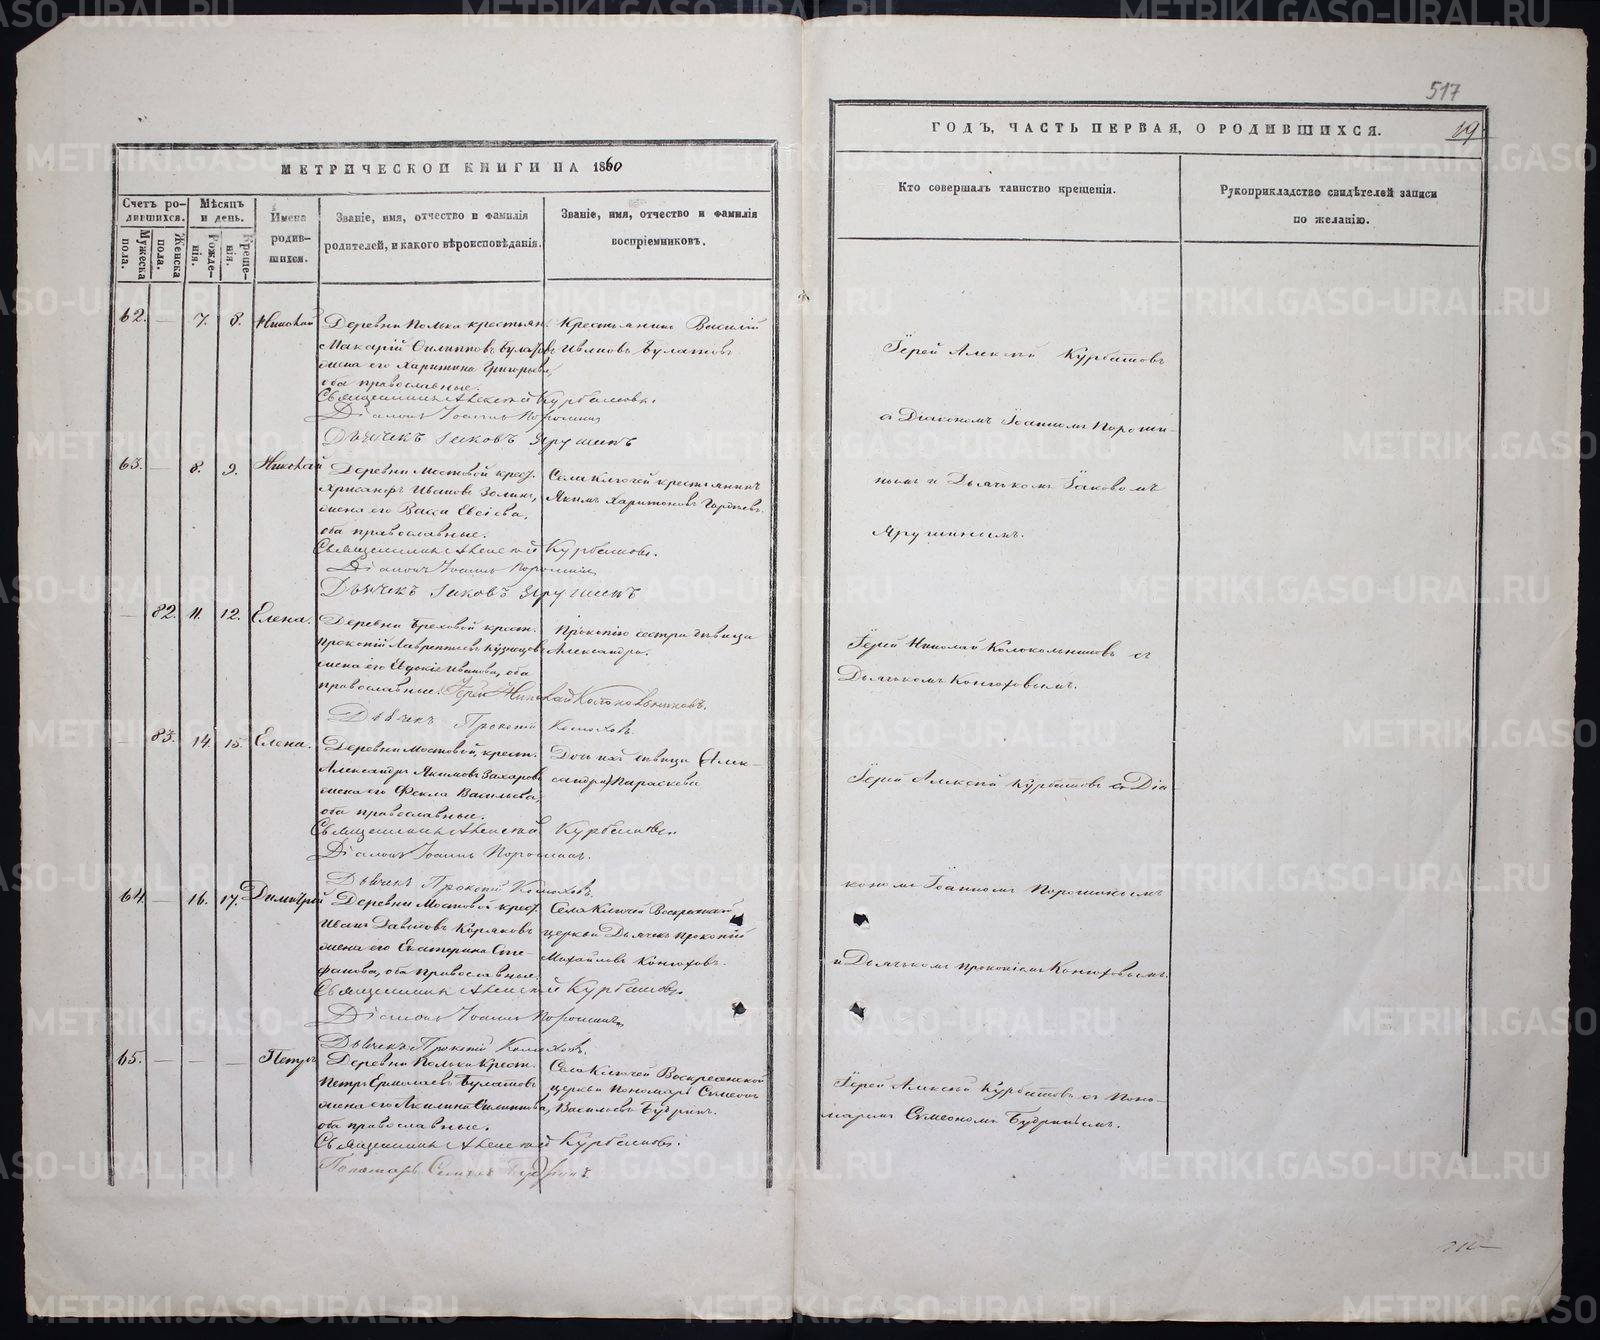 517
МЕТРИЧЕСКОЙ КНИГИ НА 1860
ГОДЪ, ЧАСТЬ ПЕРВАЯ, О РОДИВШИХСЯ.
19
Счетъ родившихся.
Мужеска пола.
Женска пола.
Мѣсяцъ и день.
Рожденія.
Крещенія.
Имена родившихся.
Званіе, имя, отчество и фамилія
родителей, и какого вѣроисповѣданія.
Званіе, имя, отчество и фамилія
воспріемниковъ.
Кто совершалъ таинство крещенія.
Рукоприкладство свидѣтелей записи
по желанію.
62. — 7. 8. Николай
Деревни Полька крестьян.
Макарій Филипповъ Булатовъ
жена его Харитина Григорьева,
оба православные.
Крестьянинъ Василій
Ивановъ Булатовъ
Священникъ Алексій Курбатовъ.
Діаконъ Іоаннъ Порошинъ
Дьячекъ Іаковъ Ярушинъ
Іерей Алексій Курбатовъ
съ Діакономъ Іоанномъ Пороши-
нымъ и Дьячкомъ Іаковомъ
Ярушинымъ.
63. — 8. 9. Николай
Деревни Мостовой крест.
Хрисанфъ Ивановъ Золинъ,
жена его Васса Евсіева,
оба православные.
Села Ключей крестьянинъ
Якимъ Харитоновъ Гордѣевъ.
Священникъ Алексій Курбатовъ.
Діаконъ Іоаннъ Порошинъ
Дьячекъ Іаковъ Ярушинъ
— 82. 11. 12. Елена.
Деревни Бреховой крест.
Прокопій Лаврентьевъ Кузнецовъ
жена его Евдокія Иванова, оба
православные.
Прокопію сестра дѣвица
Александра.
Іерей Николай Колокольниковъ.
Дьячекъ Прокопій Конюховъ.
Іерей Николай Колокольниковъ съ
Дьячкомъ Конюховымъ.
— 83. 14. 15. Елена.
Деревни Мостовой, крест.
Александръ Якимовъ Захаровъ
жена его Фекла Васильева,
оба православные.
Дочь ихъ дѣвица (Алек-
сандра) Параскева
Священникъ Алексій Курбатовъ.
Діаконъ Іоаннъ Порошинъ.
Дьячекъ Прокопій Конюховъ.
Іерей Алексій Курбатовъ съ Діа-
кономъ Іоанномъ Порошинымъ
и Дьячкомъ Прокопіемъ Конюховымъ.
64. — 16. 17. Димитрій
Деревни Мостовой крест.
Иванъ Давидовъ Коряковъ
жена его Екатерина Сте-
фанова, оба православные.
Села Ключей Воскресенской
церкви Дьячекъ Прокопій
Михайловъ Конюховъ.
Священникъ Алексій Курбатовъ.
Діаконъ Іоаннъ Порошинъ
Дьячекъ Прокопій Конюховъ.
65. — — — Петръ
Деревни Полька крест.
Петръ Ермолаевъ Булатовъ
жена его Акилина Филиппова,
оба православные.
Села Ключей Воскресенской
церкви Пономарь Сѵмеонъ
Васильевъ Будринъ.
Священникъ Алексій Курбатовъ.
Пономарь Семенъ Будринъ
Іерей Алексій Курбатовъ съ Поно-
маремъ Сѵмеономъ Будринымъ.
METRIKI.GASO-URAL.RU